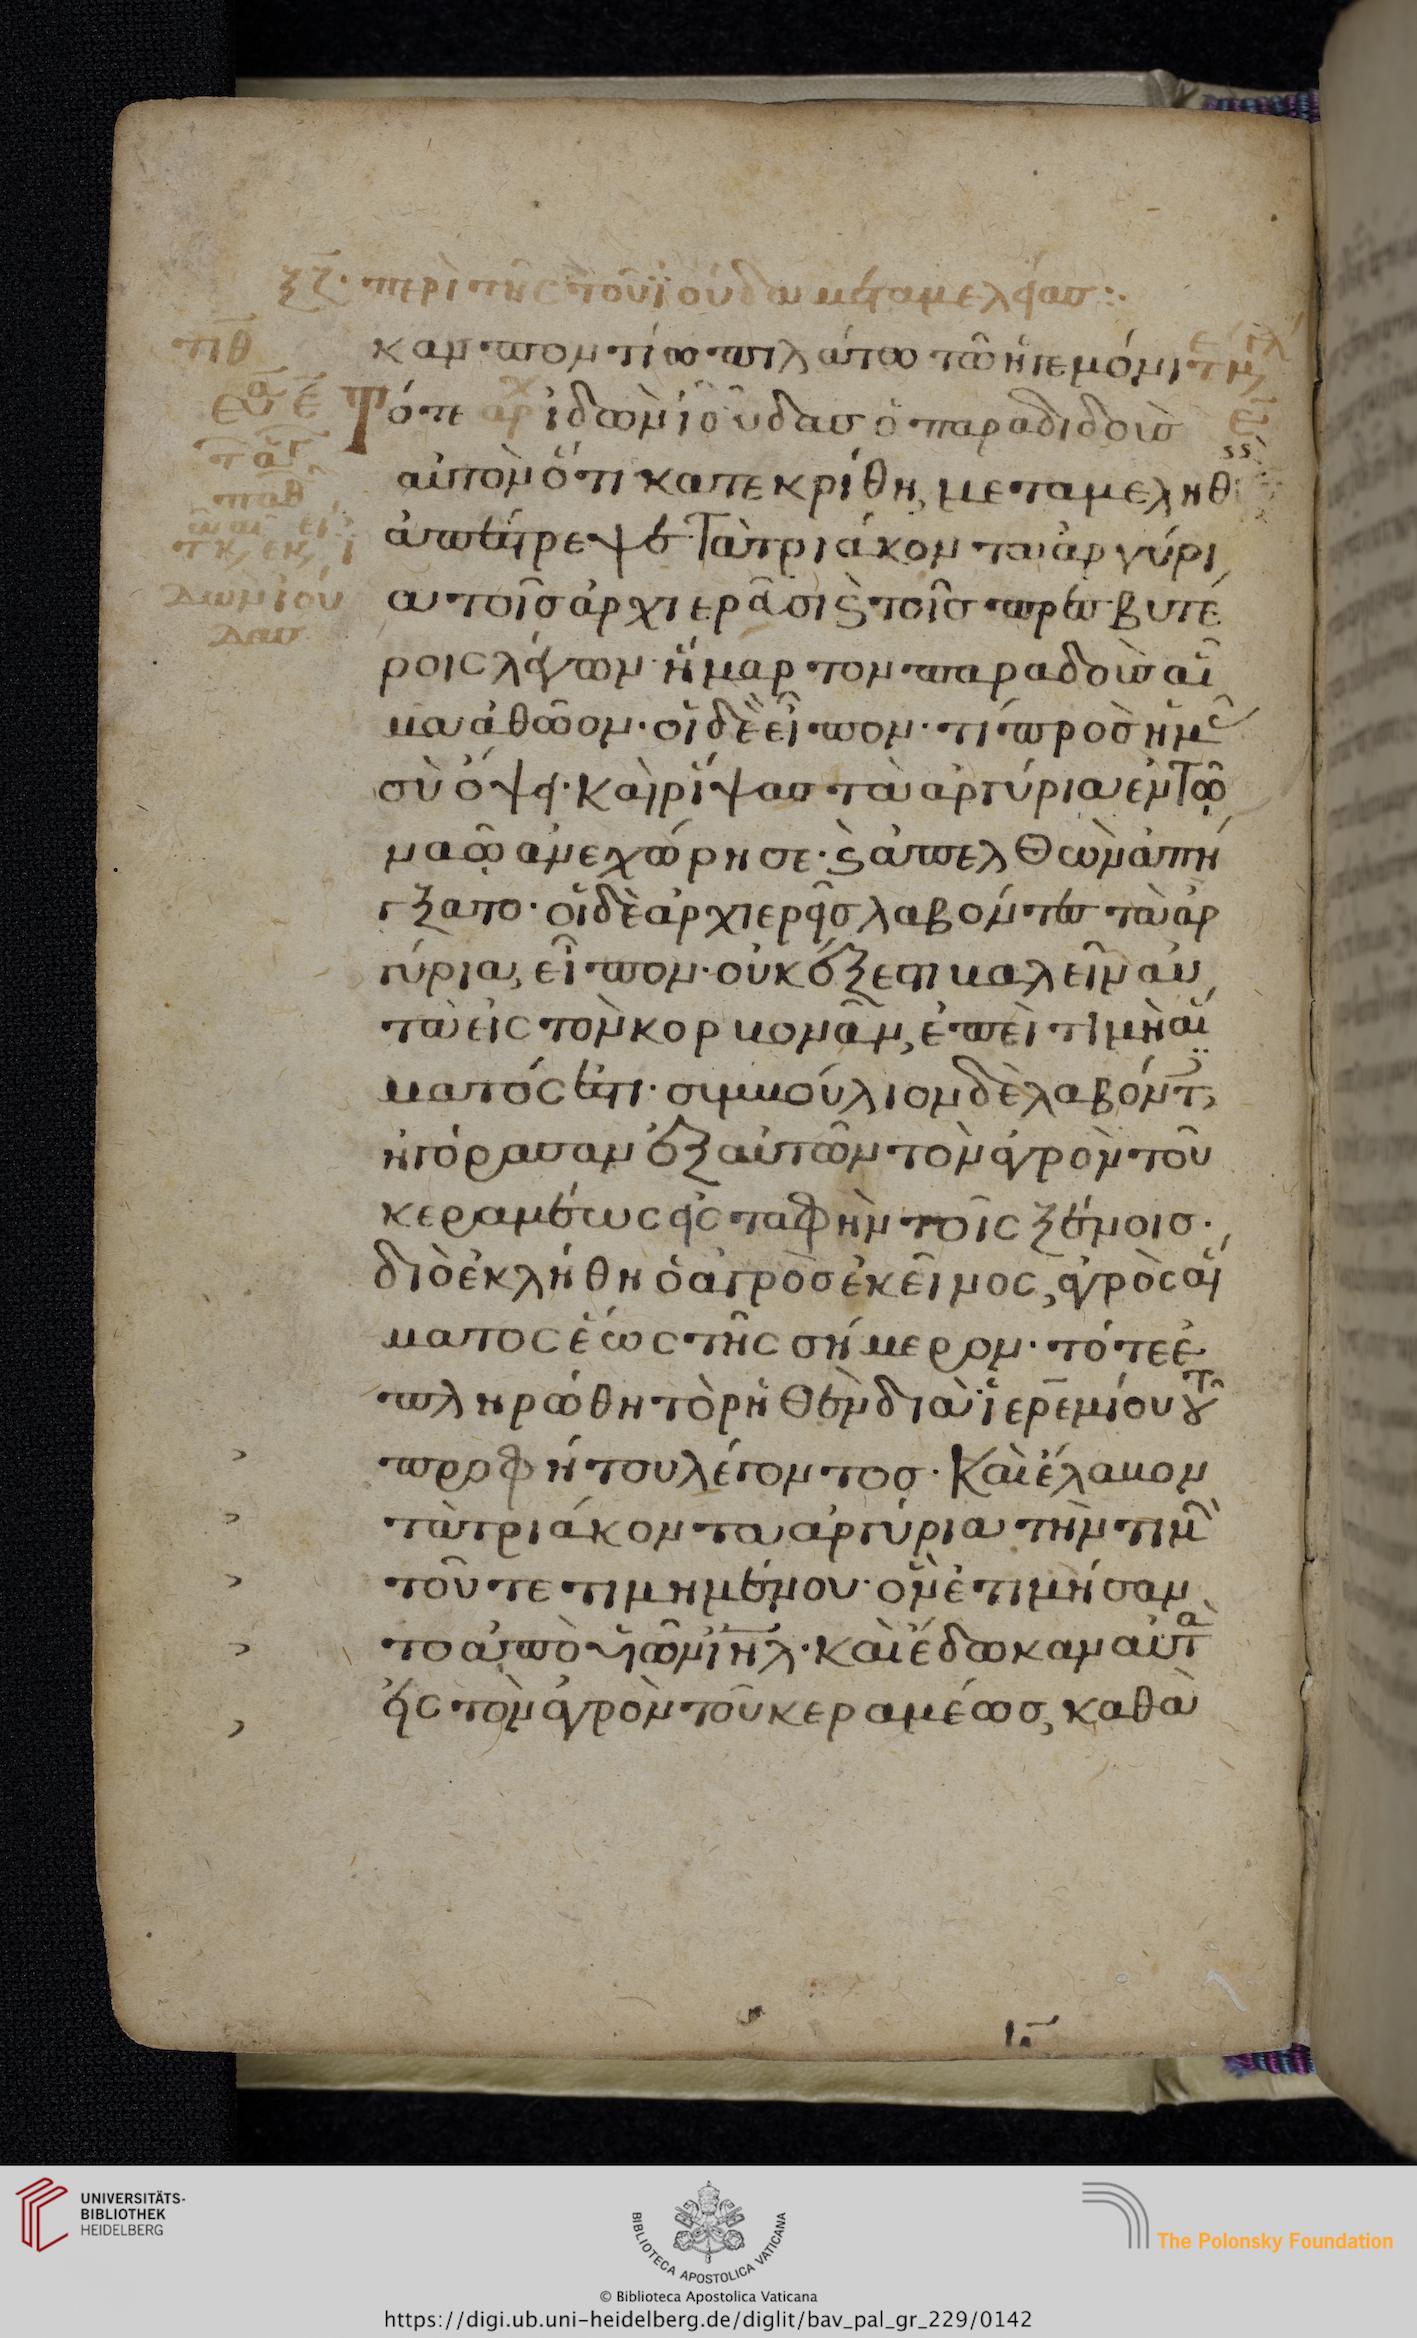 ξζ· περὶ τῆς τοῦ ἰούδα μεταμελείας:·
τιθ
καν ποντίω πιλάτω τῶ ἡγεμόνι
Τότε ἀρχ ἰδὼν ἰούδας ὁ παραδιδοὺς
αὐτὸν ὅτι κατεκρίθη, μεταμεληθ
ἀπέστρεψε τὰ τριάκοντα ἀργύρι
α τοῖς ἀρχιερεῦσι ϗ τοῖς πρεσβυτέ
ροις λέγων· ἥμαρτον παραδοὺς αἷ
μα ἀθῶον· οἱ δὲ εἶπον· τί πρὸς ἡμᾶς
σὺ ὄψει· Καὶ ρίψας τὰ ἀργύρια ἐν τῶ
ναῶ ἀνεχώρησε· ϗ ἀπελθὼν ἀπή
γξατο· οἱ δὲ ἀρχιερεῖς λαβόντες τὰ ἀρ
γύρια, εἶπον· οὐκ ἔξεστι βαλεῖν αὐ
τὰ εἰς τὸν κορβονᾶν, ἐπεὶ τιμὴ αἵ
ματός ἐστι· συμβούλιον δὲ λαβόντες,
ἠγόρασαν ἐξ αὐτῶν τὸν ἀγρὸν τοῦ
κεραμέως εἰς ταφὴν τοῖς ξένοις·
διὸ ἐκλήθη ὁ ἀγρὸς ἐκεῖνος, ἀγρὸς αἵ
ματος ἕως τῆς σήμερον· τότε ἐ
πληρώθη τὸ ρηθὲν διὰ ἱερεμίου τοῦ
προφήτου λέγοντος· Καὶ ἔλαβον
τὰ τριάκοντα ἀργύρια τὴν τιμὴν
τοῦ τετιμημένου· ὃν ἐτιμήσαν
το ἀπὸ υἱῶν ἰηλ· καὶ ἔδωκαν αὐτὰ
εἰς τὸν ἀγρὸν τοῦ κεραμέως, καθὰ
UNIVERSITÄTS-
BIBLIOTHEK
HEIDELBERG
BIBLIOTECA APOSTOLICA VATICANA
The Polonsky Foundation
© Biblioteca Apostolica Vaticana
https://digi.ub.uni-heidelberg.de/diglit/bav_pal_gr_229/0142